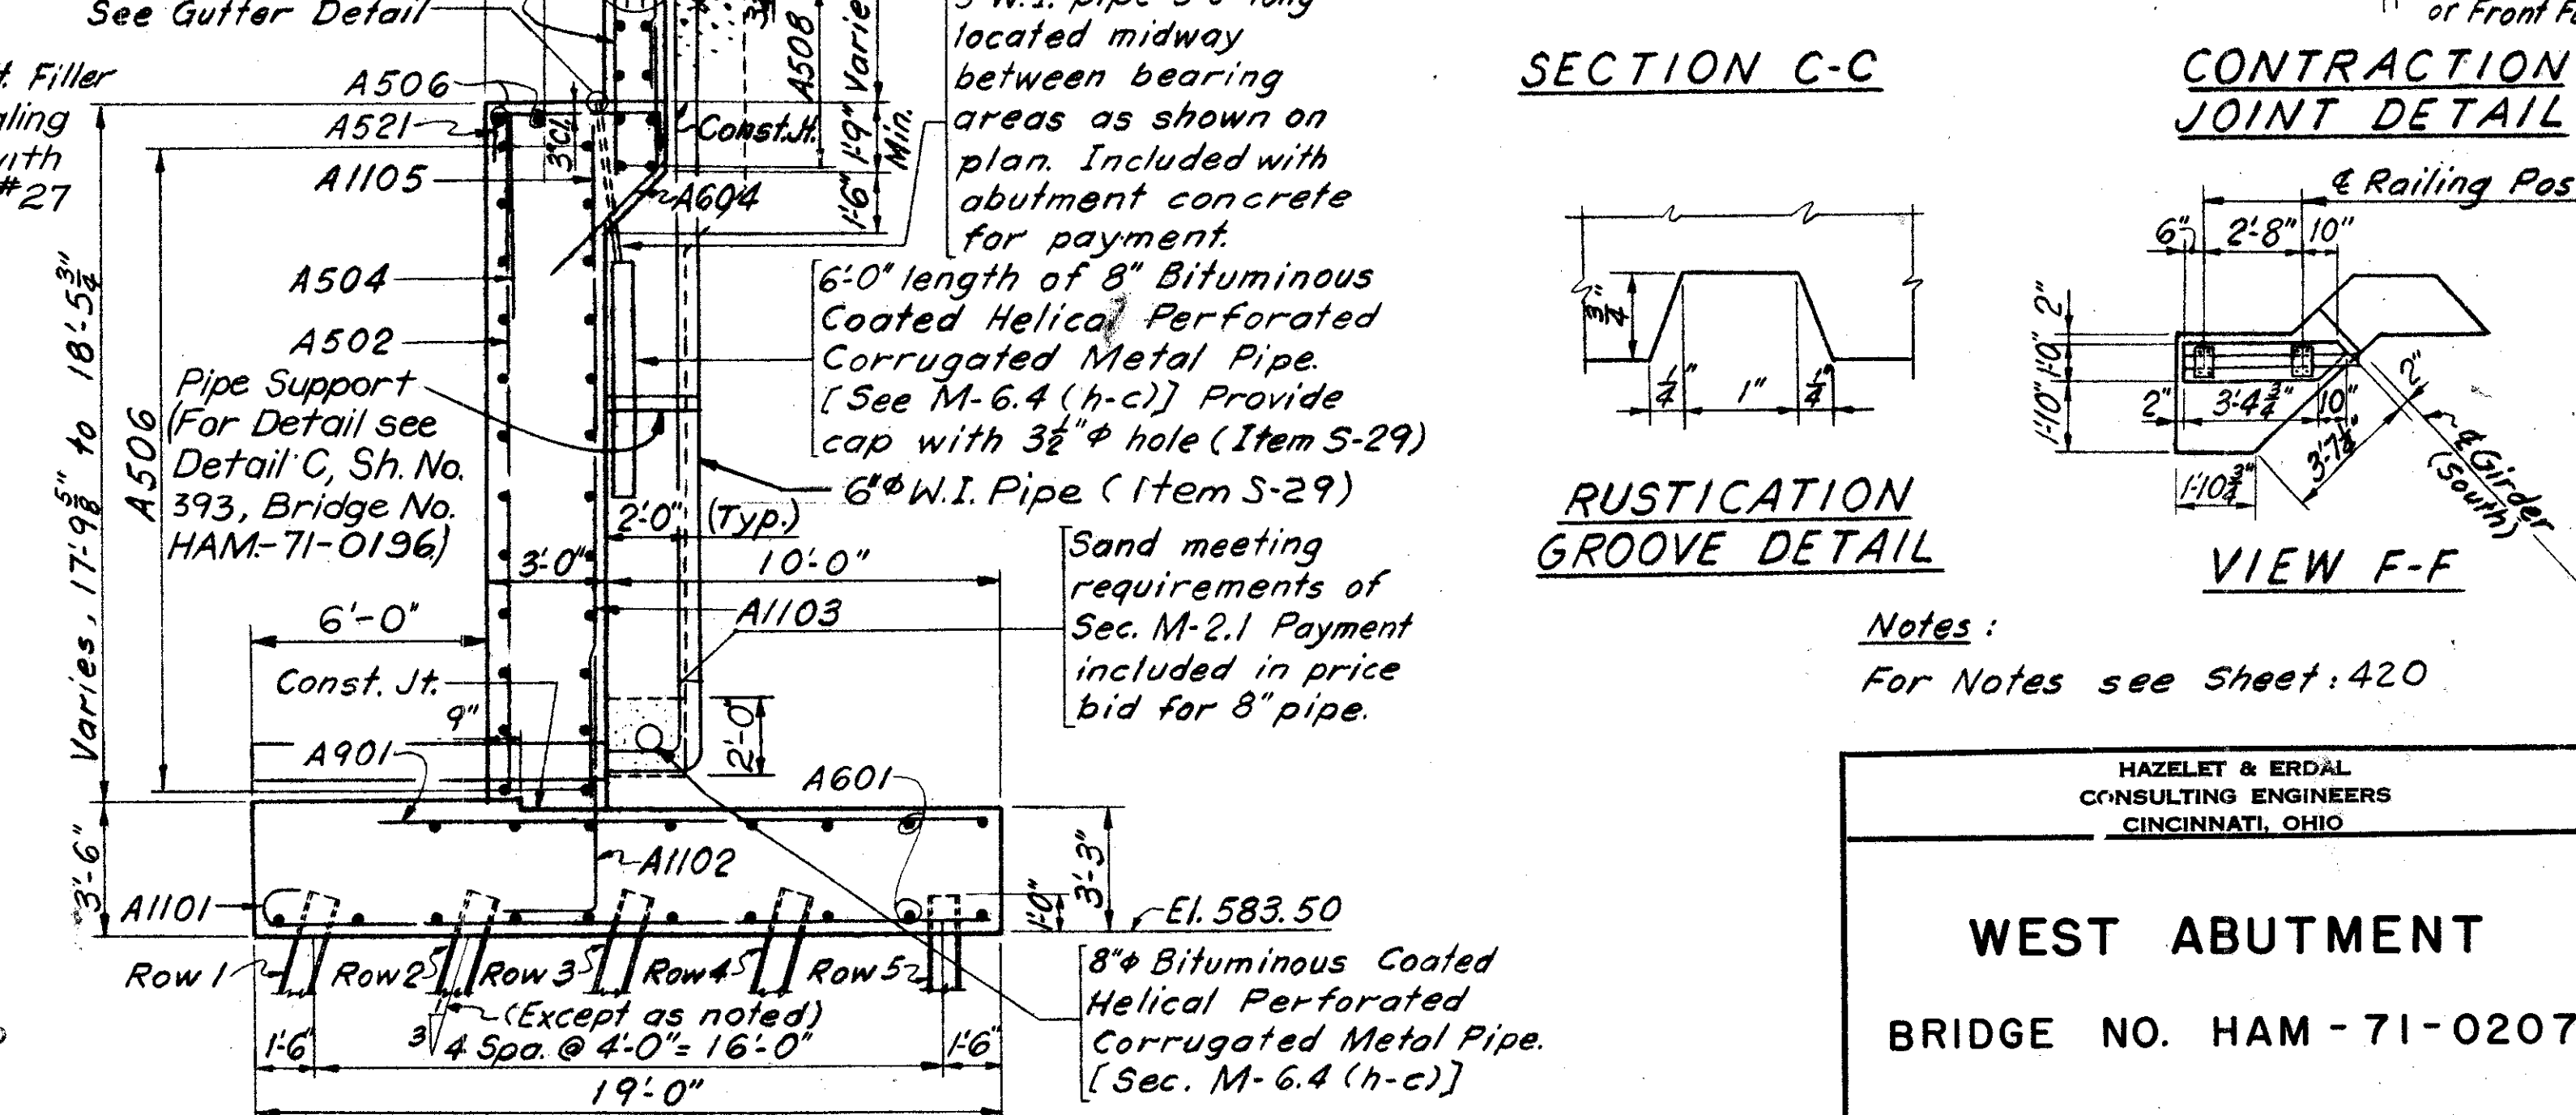 See Gutter Detail
Filler
with
#27
A506
A521
A1105
A504
A502
Pipe Support
(For Detail see
Detail C, Sh. No.
393, Bridge No.
HAM.-71-0196)
Varies, 17'-9 5/8" to 18'-5 3/4"
A506
3"Cl.
A508
Varies
1'-9"
Min.
1'-6"
Const. Jt.
A604
located midway
between bearing
areas as shown on
plan. Included with
abutment concrete
for payment.
6'-0" length of 8" Bituminous
Coated Helical Perforated
Corrugated Metal Pipe.
[See M-6.4 (h-c)] Provide
cap with 3 1/2"φ hole (Item S-29)
6"φ W.I. Pipe (Item S-29)
2'-0" (Typ.)
3'-0"
10'-0"
6'-0"
A1103
Sand meeting
requirements of
Sec. M-2.1 Payment
included in price
bid for 8" pipe.
Const. Jt.
9"
2'-0"
A901
A601
3'-6"
A1101
A1102
1'-0"
3'-3"
El. 583.50
Row 1
Row 2
Row 3
Row 4
Row 5
(Except as noted)
3
1'-6"
4 Spa. @ 4'-0" = 16'-0"
1'-6"
19'-0"
8"φ Bituminous Coated
Helical Perforated
Corrugated Metal Pipe.
[Sec. M-6.4 (h-c)]
SECTION C-C
3/4"
1/4"
1"
1/4"
RUSTICATION
GROOVE DETAIL
or Front
CONTRACTION
JOINT DETAIL
℄ Railing Pos
6"
2'-8"
10"
2"
1'-0"
1'-10"
2"
3'-4 3/4"
10"
2"
3'-7 1/4"
1'-10 3/4"
℄ Girder
(South)
VIEW F-F
Notes:
For Notes see Sheet: 420
HAZELET & ERDAL
CONSULTING ENGINEERS
CINCINNATI, OHIO
WEST ABUTMENT
BRIDGE NO. HAM - 71 - 0207